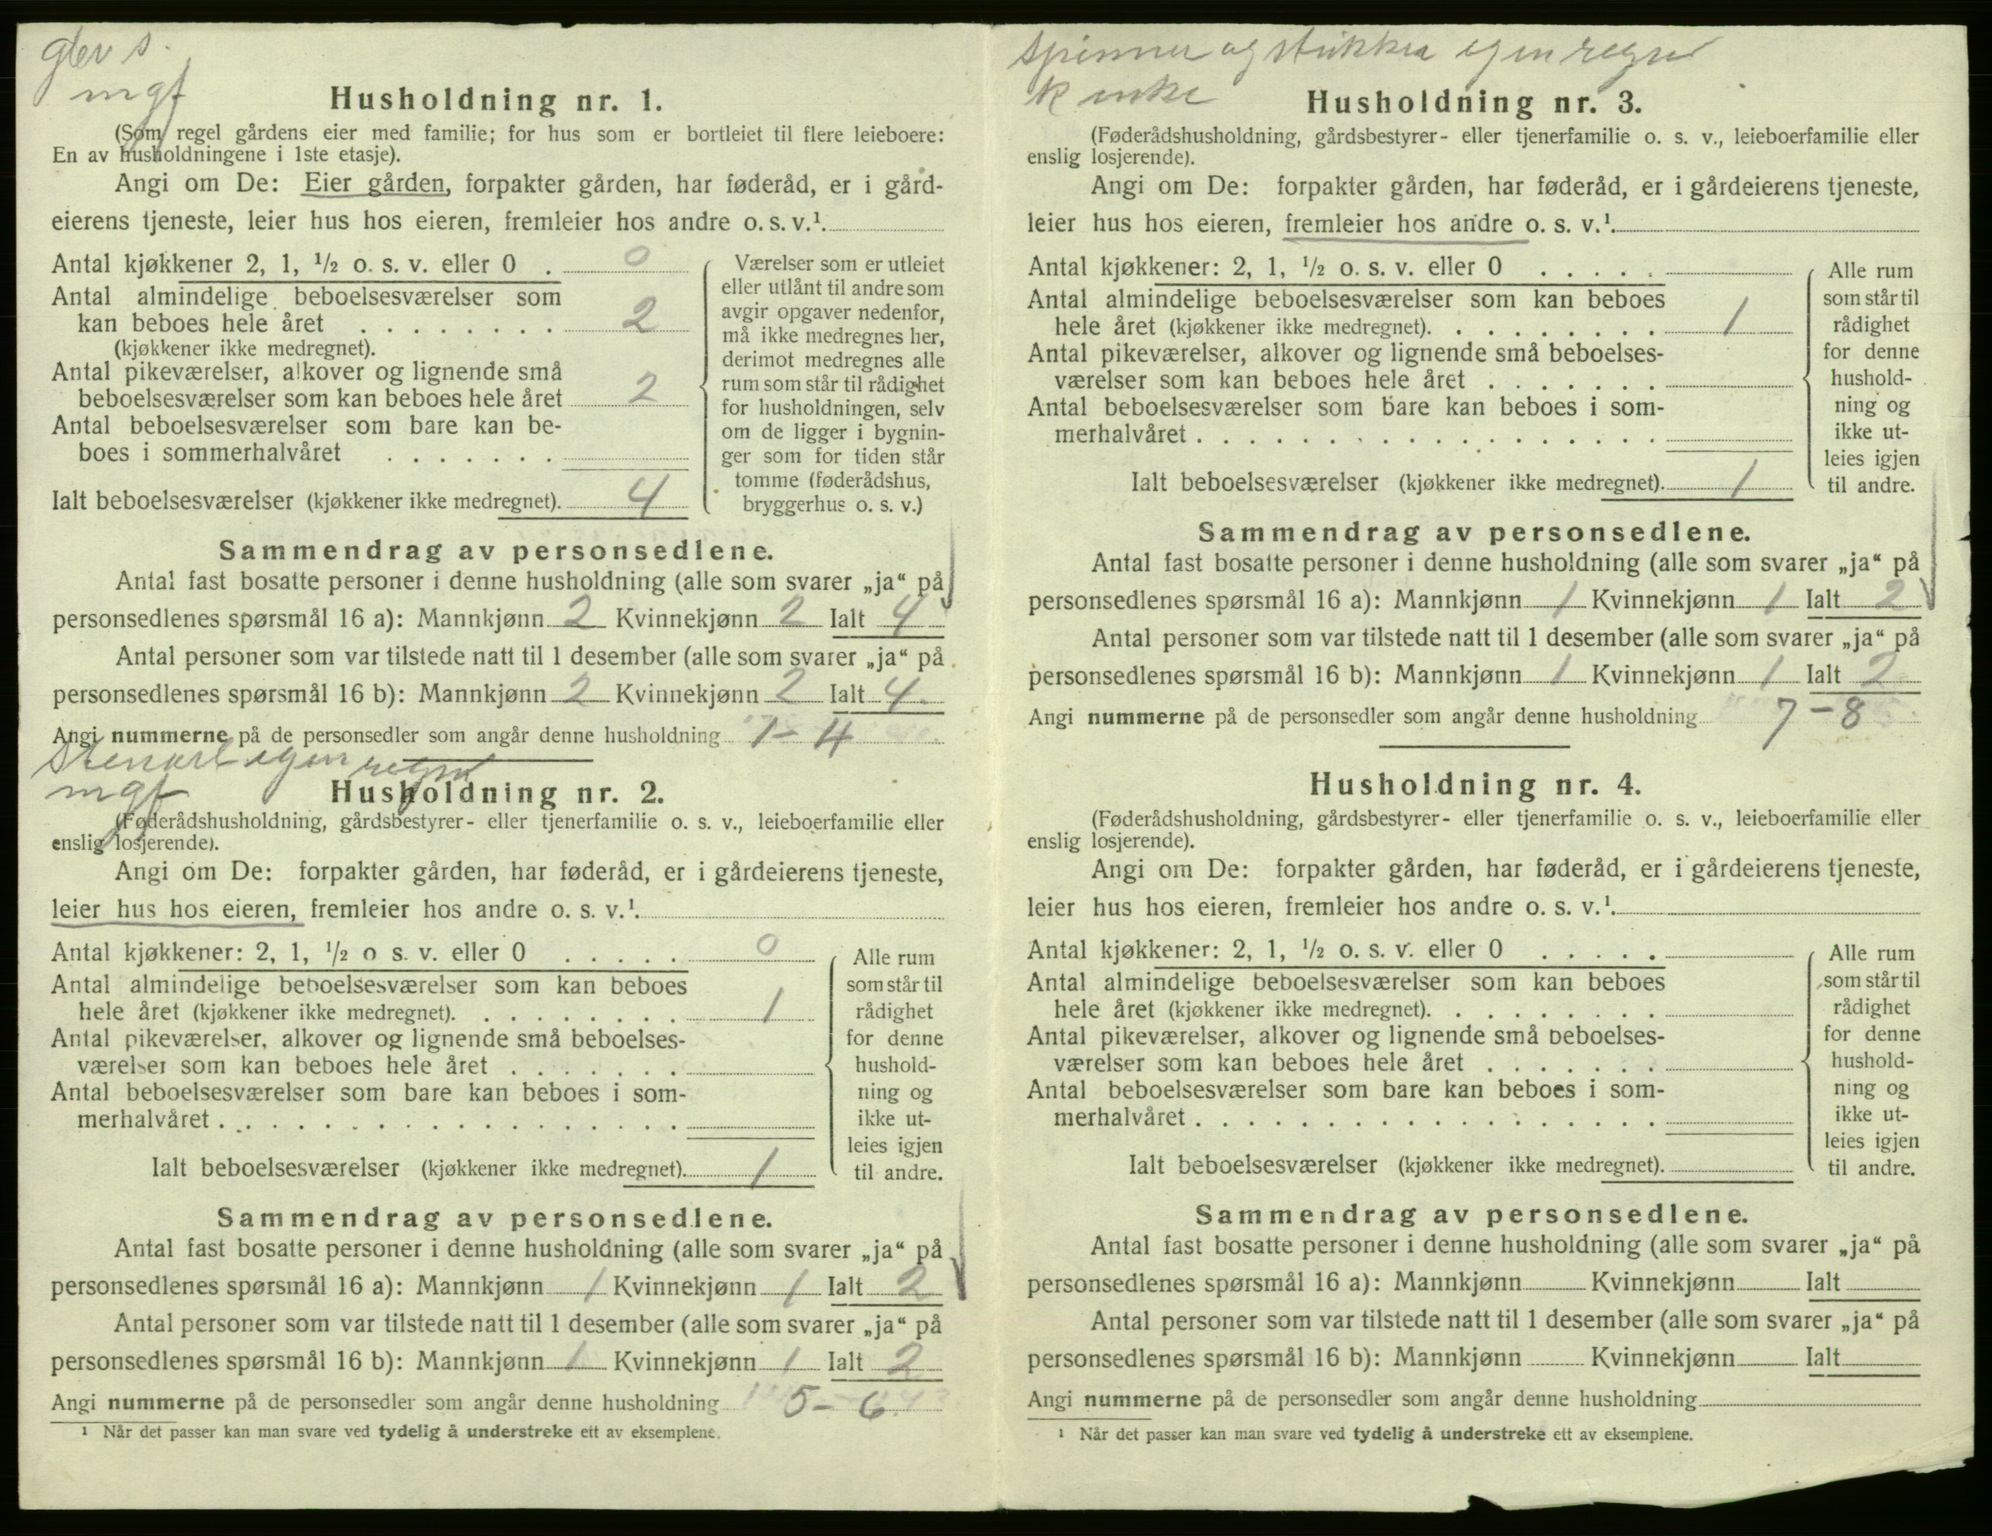 mgf
Husholdning nr. 1.
(Som regel gårdens eier med familie; for hus som er bortleiet til flere leieboere:
En av husholdningene i 1ste etasje).
Angi om De: Eier gården, forpakter gården, har føderåd, er i gård-
eierens tjeneste, leier hus hos eieren, fremleier hos andre o. s. v.¹.
Antal kjøkkener 2, 1, ½ o. s. v. eller 0 . 0
Antal almindelige beboelsesværelser som
kan beboes hele året . . . . . . . . 2
(kjøkkener ikke medregnet).
Antal pikeværelser, alkover og lignende små
beboelsesværelser som kan beboes hele året 2
Antal beboelsesværelser som bare kan be-
boes i sommerhalvåret . . . . . . .
Ialt beboelsesværelser (kjøkkener ikke medregnet). 4
Værelser som er utleiet
eller utlånt til andre som
avgir opgaver nedenfor,
må ikke medregnes her,
derimot medregnes alle
rum som står til rådighet
for husholdningen, selv
om de ligger i bygnin-
ger som for tiden står
tomme (føderådshus,
bryggerhus o. s. v.)
Sammendrag av personsedlene.
Antal fast bosatte personer i denne husholdning (alle som svarer „ja“ på
personsedlenes spørsmål 16 a): Mannkjønn 2 Kvinnekjønn 2 Ialt 4
Antal personer som var tilstede natt til 1 desember (alle som svarer „ja“ på
personsedlenes spørsmål 16 b): Mannkjønn 2 Kvinnekjønn 2 Ialt 4.
Angi nummerne på de personsedler som angår denne husholdning 1-4
egen regn
mgf
Husholdning nr. 2.
(Føderådshusholdning, gårdsbestyrer- eller tjenerfamilie o. s. v., leieboerfamilie eller
enslig losjerende).
Angi om De: forpakter gården, har føderåd, er i gårdeierens tjeneste,
leier hus hos eieren, fremleier hos andre o. s. v.¹.
Antal kjøkkener: 2, 1, ½ o s. v. eller 0 . . . . . 0
Antal almindelige beboelsesværelser som kan beboes
hele året (kjøkkener ikke medregnet). . . . . . . . . 1
Antal pikeværelser, alkover og lignende små beboelses-
værelser som kan beboes hele året . . . . . . .
Antal beboelsesværelser som bare kan beboes i som-
merhalvåret . . . . . . . . . . . . . . . . . .
Ialt beboelsesværelser (kjøkkener ikke medregnet). 1
Alle rum
som står til
rådighet
for denne
hushold-
ning og
ikke ut-
leies igjen
til andre.
Sammendrag av personsedlene.
Antal fast bosatte personer i denne husholdning (alle som svarer „ja“ på
personsedlenes spørsmål 16 a): Mannkjønn 1 Kvinnekjønn 1 Ialt 2
Antal personer som var tilstede natt til 1 desember (alle som svarer „ja“ på
personsedlenes spørsmål 16 b): Mannkjønn 1 Kvinnekjønn 1 Ialt 2
Angi nummerne på de personsedler som angår denne husholdning 5-6
¹ Når det passer kan man svare ved tydelig å understreke ett av eksemplene.
spinner og strikker egen regn
k enke
Husholdning nr. 3.
(Føderådshusholdning, gårdsbestyrer- eller tjenerfamilie o. s. v., leieboerfamilie eller
enslig losjerende).
Angi om De: forpakter gården, har føderåd, er i gårdeierens tjeneste,
leier hus hos eieren, fremleier hos andre o. s. v.¹.
Antal kjøkkener: 2, 1, ½ o. s. v. eller 0 . . . . .
Antal almindelige beboelsesværelser som kan beboes
hele året (kjøkkener ikke medregnet). . . . . . . . . 1
Antal pikeværelser, alkover og lignende små beboelses-
værelser som kan beboes hele året . . . . . . .
Antal beboelsesværelser som bare kan beboes i som-
merhalvåret . . . . . . . . . . . . . . . . . .
Ialt beboelsesværelser (kjøkkener ikke medregnet). 1
Alle rum
som står til
rådighet
for denne
hushold-
ning og
ikke ut-
leies igjen
til andre.
Sammendrag av personsedlene.
Antal fast bosatte personer i denne husholdning (alle som svarer „ja“ på
personsedlenes spørsmål 16 a): Mannkjønn 1 Kvinnekjønn 1 Ialt 2
Antal personer som var tilstede natt til 1 desember (alle som svarer „ja“ på
personsedlenes spørsmål 16 b): Mannkjønn 1 Kvinnekjønn 1 Ialt 2
Angi nummerne på de personsedler som angår denne husholdning 7-8
Husholdning nr. 4.
(Føderådshusholdning, gårdsbestyrer- eller tjenerfamilie o. s. v., leieboerfamilie eller
enslig losjerende).
Angi om De: forpakter gården, har føderåd, er i gårdeierens tjeneste,
leier hus hos eieren, fremleier hos andre o. s. v.¹.
Antal kjøkkener: 2, 1, ½ o. s. v. eller 0 . . . . .
Antal almindelige beboelsesværelser som kan beboes
hele året (kjøkkener ikke medregnet). . . . . . . . .
Antal pikeværelser, alkover og lignende små beboelses-
værelser som kan beboes hele året . . . . . . .
Antal beboelsesværelser som bare kan beboes i som-
merhalvåret . . . . . . . . . . . . . . . . . .
Ialt beboelsesværelser (kjøkkener ikke medregnet).
Alle rum
som står til
rådighet
for denne
hushold-
ning og
ikke ut-
leies igjen
til andre.
Sammendrag av personsedlene.
Antal fast bosatte personer i denne husholdning (alle som svarer „ja“ på
personsedlenes spørsmål 16 a): Mannkjønn Kvinnekjønn Ialt
Antal personer som var tilstede natt til 1 desember (alle som svarer „ja“ på
personsedlenes spørsmål 16 b): Mannkjønn Kvinnekjønn Ialt
Angi nummerne på de personsedler som angår denne husholdning
¹ Når det passer kan man svare ved tydelig å understreke ett av eksemplene.